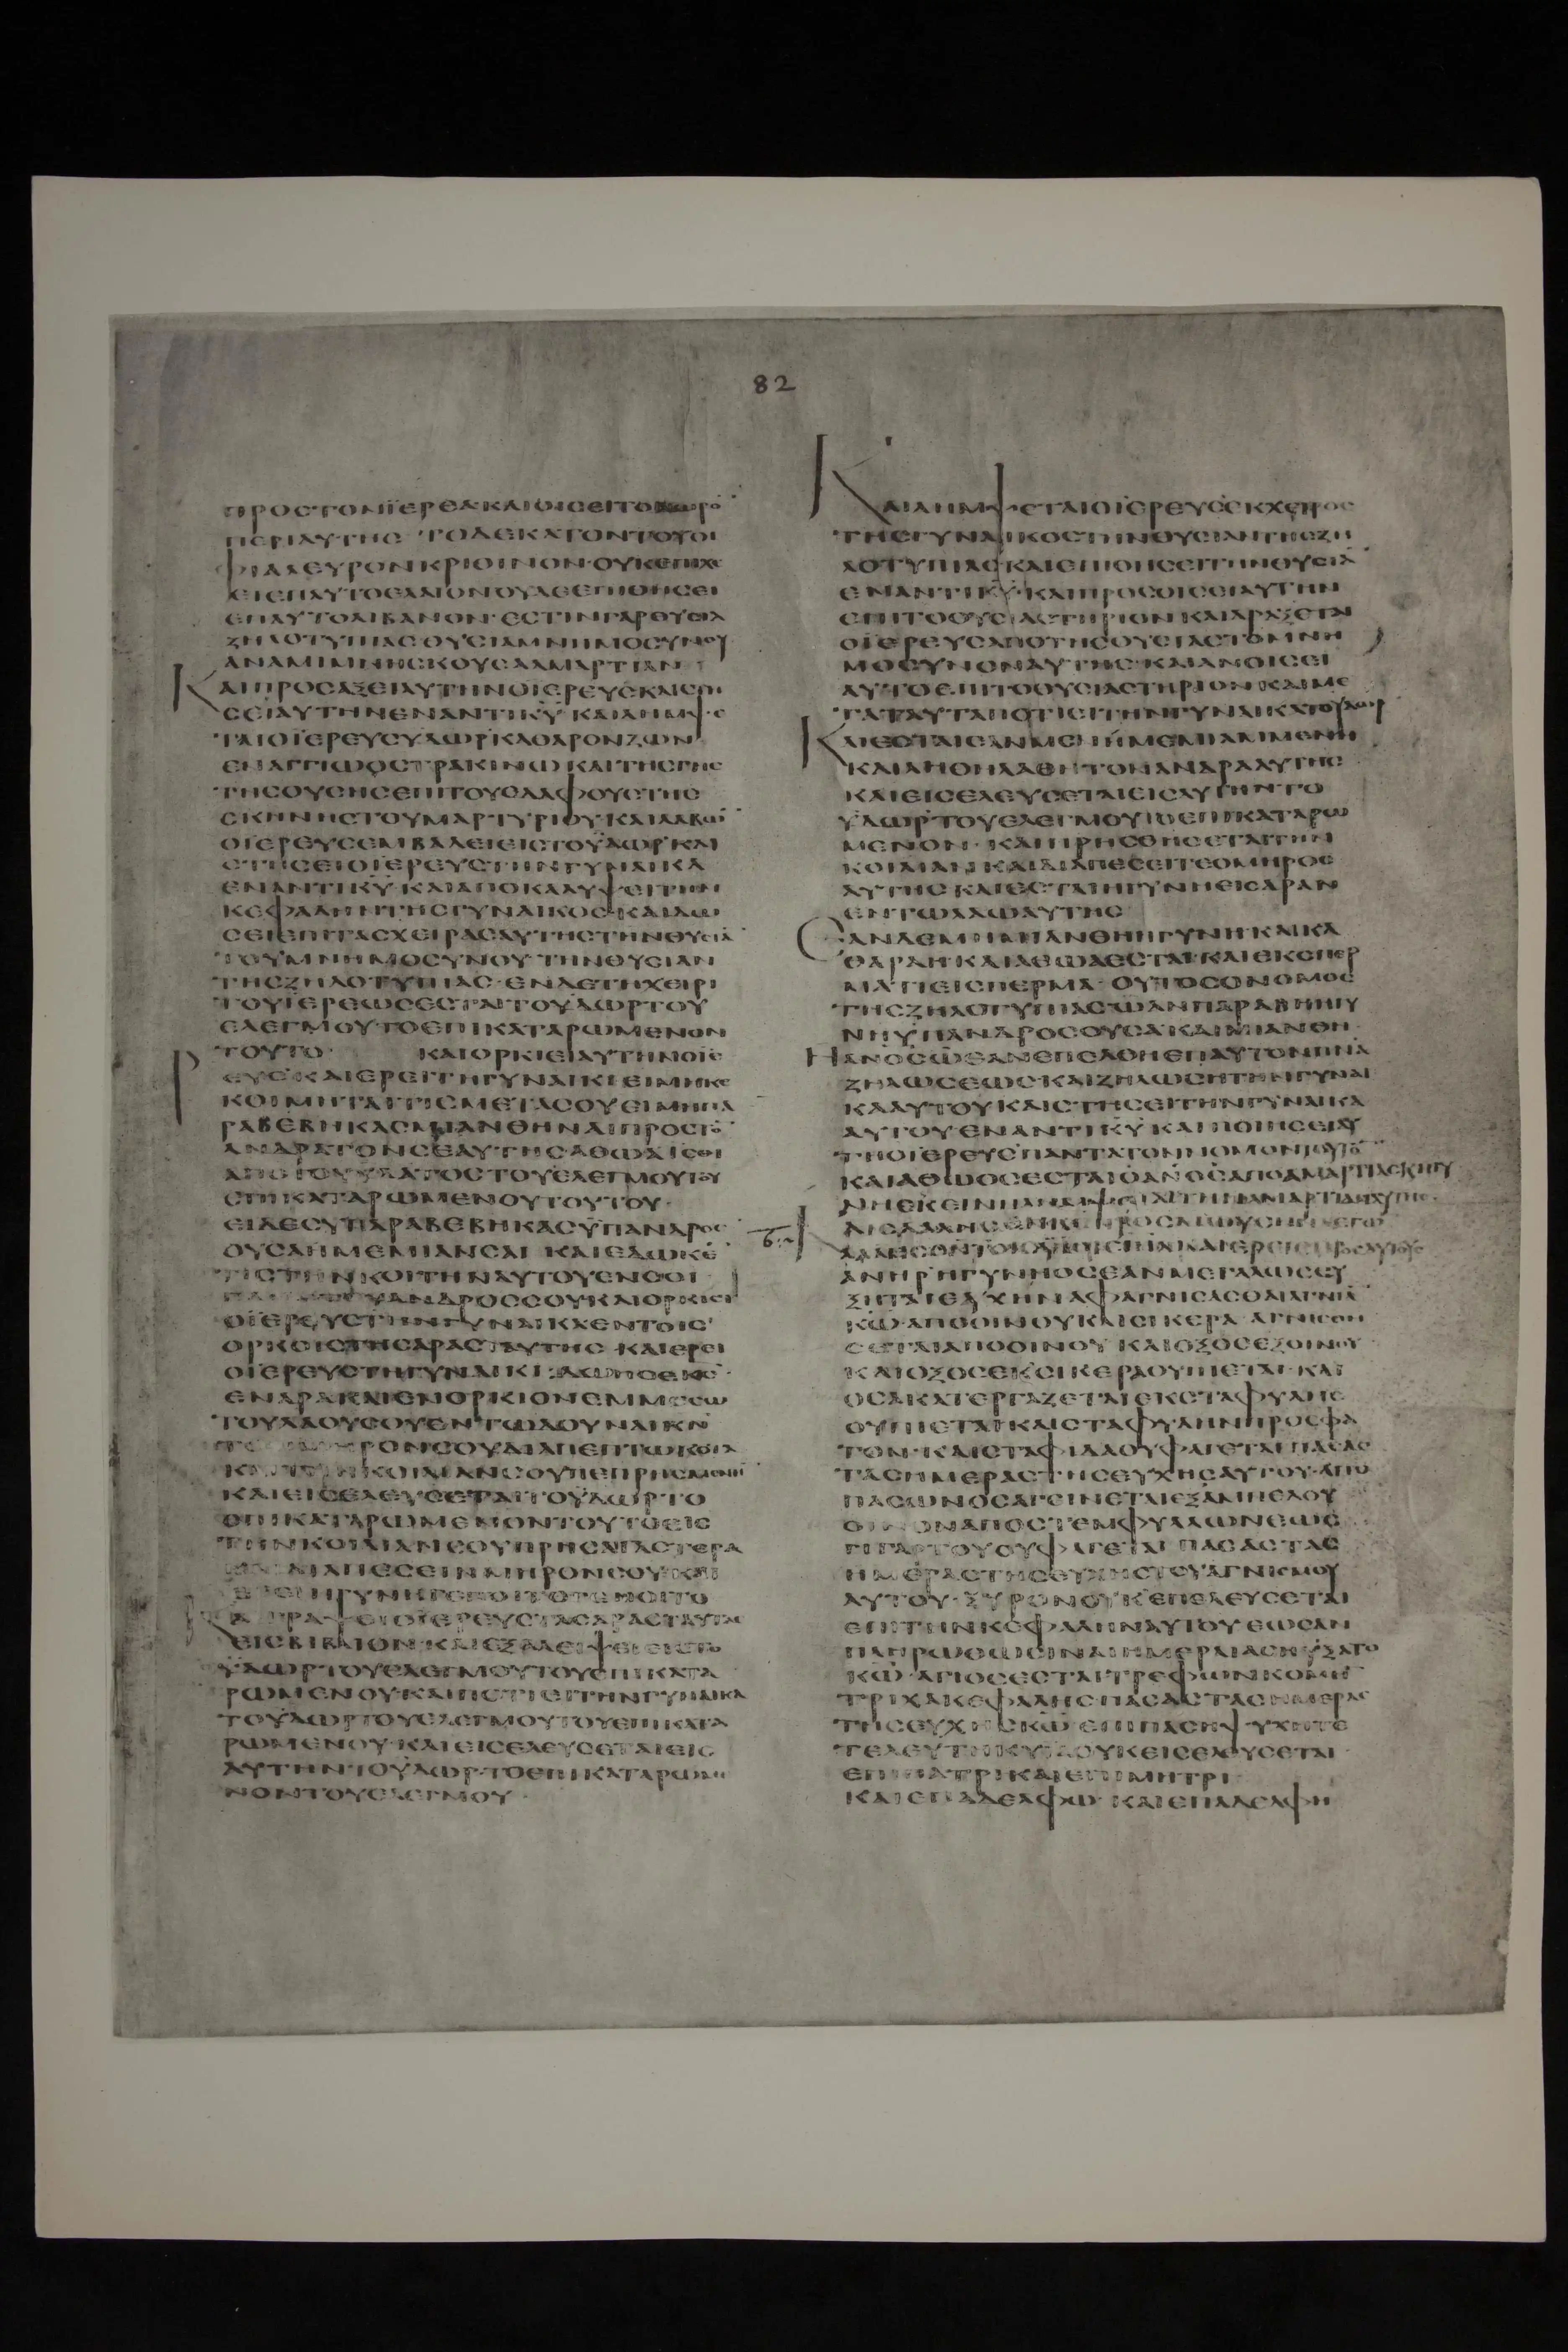 82
ΠΡΟΣΤΟΝΪΕΡΕΑΚΑΙΟΙΣΕΙΤΟ
ΠΕΡΙΑΥΤΗΣ ΤΟΔΕΚΑΤΟΝΤΟΥΟΙ
ΦΙΑΛΕΥΡΟΝΚΡΙΘΙΝΟΝ·ΟΥΚΕΠΙΧΕ
ΕΙΕΠΑΥΤΟΕΛΑΙΟΝΟΥΔΕΕΠΙΘΗΣΕΙ
ΕΠΑΥΤΟΛΙΒΑΝΟΝ·ΕΣΤΙΝΓΑΡΘΥΣΙΑ
ΖΗΛΟΤΥΠΙΑΣΘΥΣΙΑΜΝΗΜΟΣΥΝΟΥ
ΑΝΑΜΙΜΝΗΣΚΟΥΣΑΑΜΑΡΤΙΑΝ
ΚΑΙΠΡΟΣΑΞΕΙΑΥΤΗΝΟΪΕΡΕΥΣΚΑΙΣΤΗ
ΣΕΙΑΥΤΗΝΕΝΑΝΤΙΚΥ ΚΑΙΛΗΜΨΕ
ΤΑΙΟΪΕΡΕΥΣΥΔΩΡΚΑΘΑΡΟΝΖΩΝ
ΕΝΑΓΓΙΩΟΣΤΡΑΚΙΝΩ ΚΑΙΤΗΣΓΗΣ
ΤΗΣΟΥΣΗΣΕΠΙΤΟΥΕΔΑΦΟΥΣΤΗΣ
ΣΚΗΝΗΣΤΟΥΜΑΡΤΥΡΙΟΥ·ΚΑΙΛΑΒΩ
ΟΪΕΡΕΥΣΕΜΒΑΛΕΙΕΙΣΤΟΫΔΩΡ ΚΑΙ
ΣΤΗΣΕΙΟΪΕΡΕΥΣΤΗΝΓΥΝΑΙΚΑ
ΕΝΑΝΤΙΚΥ ΚΑΙΑΠΟΚΑΛΥΨΕΙΤΗΝ
ΚΕΦΑΛΗΝΤΗΣΓΥΝΑΙΚΟΣ·ΚΑΙΔΩ
ΣΕΙΕΠΙΤΑΣΧΕΙΡΑΣΑΥΤΗΣΤΗΝΘΥΣΙΑ
ΤΟΥΜΝΗΜΟΣΥΝΟΥ·ΤΗΝΘΥΣΙΑΝ
ΤΗΣΖΗΛΟΤΥΠΙΑΣ·ΕΝΔΕΤΗΧΕΙΡΙ
ΤΟΥΪΕΡΕΩΣΕΣΤΑΙΤΟΥΔΩΡΤΟΥ
ΕΛΕΓΜΟΥ·ΤΟΕΠΙΚΑΤΑΡΩΜΕΝΟΝ
ΤΟΥΤΟ· ΚΑΙΟΡΚΙΕΙΑΥΤΗΝΟΪΕ
ΡΕΥΣ·ΚΑΙΕΡΕΙΤΗΓΥΝΑΙΚΙΕΙΜΗΚΕ
ΚΟΙΜΗΤΑΙΤΙΣΜΕΤΑΣΟΥΕΙΜΗΠΑ
ΡΑΒΕΒΗΚΑΣΜΙΑΝΘΗΝΑΙΠΡΟΣΤΟ
ΑΝΔΡΑΤΟΝΣΕΑΥΤΗΣΑΘΩΑΙΣΘΙ
ΑΠΟΤΟΥΥΔΑΤΟΣΤΟΥΕΛΕΓΜΟΥΤΟΥ
ΕΠΙΚΑΤΑΡΩΜΕΝΟΥΤΟΥΤΟΥ·
ΕΙΔΕΣΥΠΑΡΑΒΕΒΗΚΑΣΥΠΑΝΔΡΟΣ
ΟΥΣΑΗΜΕΜΙΑΝΣΑΙ ΚΑΙΕΔΩΚΕ
ΤΙΣΤΗΝΚΟΙΤΗΝΑΥΤΟΥΕΝΣΟΙ
ΑΝΔΡΟΣΣΟΥΚΑΙΟΡΚΙΕΙ
ΟΪΕΡΕΥΣΤΗΝΓΥΝΑΙΚΑΕΝΤΟΙΣ
ΟΡΚΟΙΣΤΗΣΑΡΑΣΤΑΥΤΗΣ·ΚΑΙΕΡΕΙ
ΟΪΕΡΕΥΣΤΗΓΥΝΑΙΚΙ·ΔΩΗΣΕΚΣ·
ΕΝΑΡΑΚΑΙΕΝΟΡΚΙΟΝΕΜΜΕΣΩ
ΤΟΥΛΑΟΥΣΟΥΕΝΤΩΔΟΥΝΑΙΚΝ
ΡΟΝΣΟΥΔΙΑΠΕΠΤΩΚΟΤΑ
ΚΟΙΛΙΑΝΣΟΥΠΕΠΡΗΣΜΕΝΗ
ΚΑΙΕΙΣΕΛΕΥΣΕΤΑΙΤΟΫΔΩΡΤΟ
ΕΠΙΚΑΤΑΡΩΜΕΝΟΝΤΟΥΤΟΕΙΣ
ΤΗΝΚΟΙΛΙΑΝΣΟΥΠΡΗΣΑΙΓΑΣΤΕΡΑ
ΔΙΑΠΕΣΕΙΝΜΗΡΟΝΣΟΥ·ΚΑΙ
ΕΡΕΙΗΓΥΝΗΓΕΝΟΙΤΟΓΕΝΟΙΤΟ
ΓΡΑΨΕΙΟΪΕΡΕΥΣΤΑΣΑΡΑΣΤΑΥΤΑΣ
ΕΙΣΒΙΒΛΙΟΝ·ΚΑΙΕΞΑΛΕΙΨΕΙΕΙΣΤΟ
ΫΔΩΡΤΟΥΕΛΕΓΜΟΥΤΟΥΕΠΙΚΑΤΑ
ΡΩΜΕΝΟΥ·ΚΑΙΠΟΤΙΕΙΤΗΝΓΥΝΑΙΚΑ
ΤΟΥΔΩΡΤΟΥΕΛΕΓΜΟΥΤΟΥΕΠΙΚΑΤΑ
ΡΩΜΕΝΟΥ·ΚΑΙΕΙΣΕΛΕΥΣΕΤΑΙΕΙΣ
ΑΥΤΗΝΤΟΫΔΩΡ·ΤΟΕΠΙΚΑΤΑΡΩΜΕ
ΝΟΝΤΟΥΕΛΕΓΜΟΥ·
ΚΑΙΛΗΜΨΕΤΑΙΟΪΕΡΕΥΣΕΚΧΕΙΡΟΣ
ΤΗΣΓΥΝΑΙΚΟΣΤΗΝΘΥΣΙΑΝΤΗΣΖΗ
ΛΟΤΥΠΙΑΣ·ΚΑΙΕΠΙΘΗΣΕΙΤΗΝΘΥΣΙΑ
ΕΝΑΝΤΙΚΥ·ΚΑΙΠΡΟΣΟΙΣΕΙΑΥΤΗΝ
ΕΠΙΤΟΘΥΣΙΑΣΤΗΡΙΟΝΚΑΙΔΡΑΞΕΤΑΙ
ΟΪΕΡΕΥΣΑΠΟΤΗΣΘΥΣΙΑΣΤΟΜΝΗ
ΜΟΣΥΝΟΝΑΥΤΗΣ·ΚΑΙΑΝΟΙΣΕΙ
ΑΥΤΟΕΠΙΤΟΘΥΣΙΑΣΤΗΡΙΟΝ·ΚΑΙΜΕ
ΤΑΤΑΥΤΑΠΟΤΙΕΙΤΗΝΓΥΝΑΙΚΑΤΟΥΔΩΡ
ΚΑΙΕΣΤΑΙΕΑΝΜΕΝΗΜΕΜΙΑΜΜΕΝΗ
ΚΑΙΛΗΘΗΛΑΘΗΤΟΝΑΝΔΡΑΑΥΤΗΣ
ΚΑΙΕΙΣΕΛΕΥΣΕΤΑΙΕΙΣΑΥΤΗΝΤΟ
ΥΔΩΡΤΟΥΕΛΕΓΜΟΥΤΟΕΠΙΚΑΤΑΡΩ
ΜΕΝΟΝ·ΚΑΙΠΡΗΣΘΗΣΕΤΑΙΤΗΝ
ΚΟΙΛΙΑΝ·ΚΑΙΔΙΑΠΕΣΕΙΤΑΙΟΜΗΡΟΣ
ΑΥΤΗΣ·ΚΑΙΕΣΤΑΙΗΓΥΝΗΕΙΣΑΡΑΝ
ΕΝΤΩΛΑΩΑΥΤΗΣ
ΕΑΝΔΕΜΗΜΙΑΝΘΗΗΓΥΝΗ·ΚΑΙΚΑ
ΘΑΡΑΗ·ΚΑΙΑΘΩΑΕΣΤΑΙ·ΚΑΙΕΚΣΠΕΡ
ΜΑΤΙΕΙΣΠΕΡΜΑ·ΟΥΤΟΣΟΝΟΜΟΣ
ΤΗΣΖΗΛΟΤΥΠΙΑΣΩΑΝΠΑΡΑΒΗΗΓΥ
ΝΗΫΠΑΝΔΡΟΣΟΥΣΑΚΑΙΜΙΑΝΘΗ·
ΗΑΝΟΣΩΕΑΝΕΠΕΛΘΗΕΠΑΥΤΟΝΠΝΑ
ΖΗΛΩΣΕΩΣ·ΚΑΙΖΗΛΩΣΗΤΗΝΓΥΝΑΙ
ΚΑΑΥΤΟΥΚΑΙΣΤΗΣΕΙΤΗΝΓΥΝΑΙΚΑ
ΑΥΤΟΥΕΝΑΝΤΙΚΥ ΚΑΙΠΟΙΗΣΕΙΑΥ
ΤΗΟΪΕΡΕΥΣΠΑΝΤΑΤΟΝΝΟΜΟΝΤΟΥΤΟ
ΚΑΙΑΘΩΟΣΕΣΤΑΙΟΑΝΟΣΑΠΟΑΜΑΡΤΙΑΣΚΗΓΥ
ΝΗΕΚΕΙΝΗ
ΑΝΗΡΗΓΥΝΗΟΣΕΑΝΜΕΓΑΛΩΣΕΥ
ΞΗΤΑΙΕΥΧΗΝΑΦΑΓΝΙΣΑΣΘΑΙΑΓΝΙΑ
ΚΩ·ΑΠΟΟΙΝΟΥΚΑΙΣΙΚΕΡΑ·ΑΓΝΙΣΘΗ
ΣΕΤΑΙΑΠΟΟΙΝΟΥ ΚΑΙΟΞΟΣΕΞΟΙΝΟΥ
ΚΑΙΟΞΟΣΕΚΣΙΚΕΡΑΟΥΠΙΕΤΑΙ·ΚΑΙ
ΟΣΑΚΑΤΕΡΓΑΖΕΤΑΙΕΚΣΤΑΦΥΛΗΣ
ΟΥΠΙΕΤΑΙ·ΚΑΙΣΤΑΦΥΛΗΝΠΡΟΣΦΑ
ΤΟΝ·ΚΑΙΣΤΑΦΙΔΑΟΥΦΑΓΕΤΑΙΠΑΣΑΣ
ΤΑΣΗΜΕΡΑΣΤΗΣΕΥΧΗΣΑΥΤΟΥ·ΑΠΟ
ΠΑΣΩΝΟΣΑΓΕΙΝΕΤΑΙΕΞΑΜΠΕΛΟΥ
ΟΙΝΟΝΑΠΟΣΤΕΜΦΥΛΛΩΝΕΩΣ
ΓΙΓΑΡΤΟΥΟΥΦΑΓΕΤΑΙ ΠΑΣΑΣΤΑΣ
ΗΜΕΡΑΣΤΗΣΕΥΧΗΣΤΟΥΑΓΝΙΣΜΟΥ
ΑΥΤΟΥ·ΞΥΡΟΝΟΥΚΕΠΕΛΕΥΣΕΤΑΙ
ΕΠΙΤΗΝΚΕΦΑΛΗΝΑΥΤΟΥΕΩΣΑΝ
ΠΛΗΡΩΘΩΣΙΝΑΙΗΜΕΡΑΙΑΣΗΥΞΑΤΟ
ΚΩ·ΑΓΙΟΣΕΣΤΑΙΤΡΕΦΩΝΚΟΜΗ
ΤΡΙΧΑΚΕΦΑΛΗΣΠΑΣΑΣΤΑΣΗΜΕΡΑΣ
ΤΗΣΕΥΧΗΣΚΩ ΕΠΙΠΑΣΗΨΥΧΗΤΕ
ΤΕΛΕΥΤΗΚΥΙΑΟΥΚΕΙΣΕΛΕΥΣΕΤΑΙ
ΕΠΙΠΑΤΡΙΚΑΙΕΠΙΜΗΤΡΙ
ΚΑΙΕΠΑΔΕΛΦΩ·ΚΑΙΕΠΑΔΕΛΦΗ